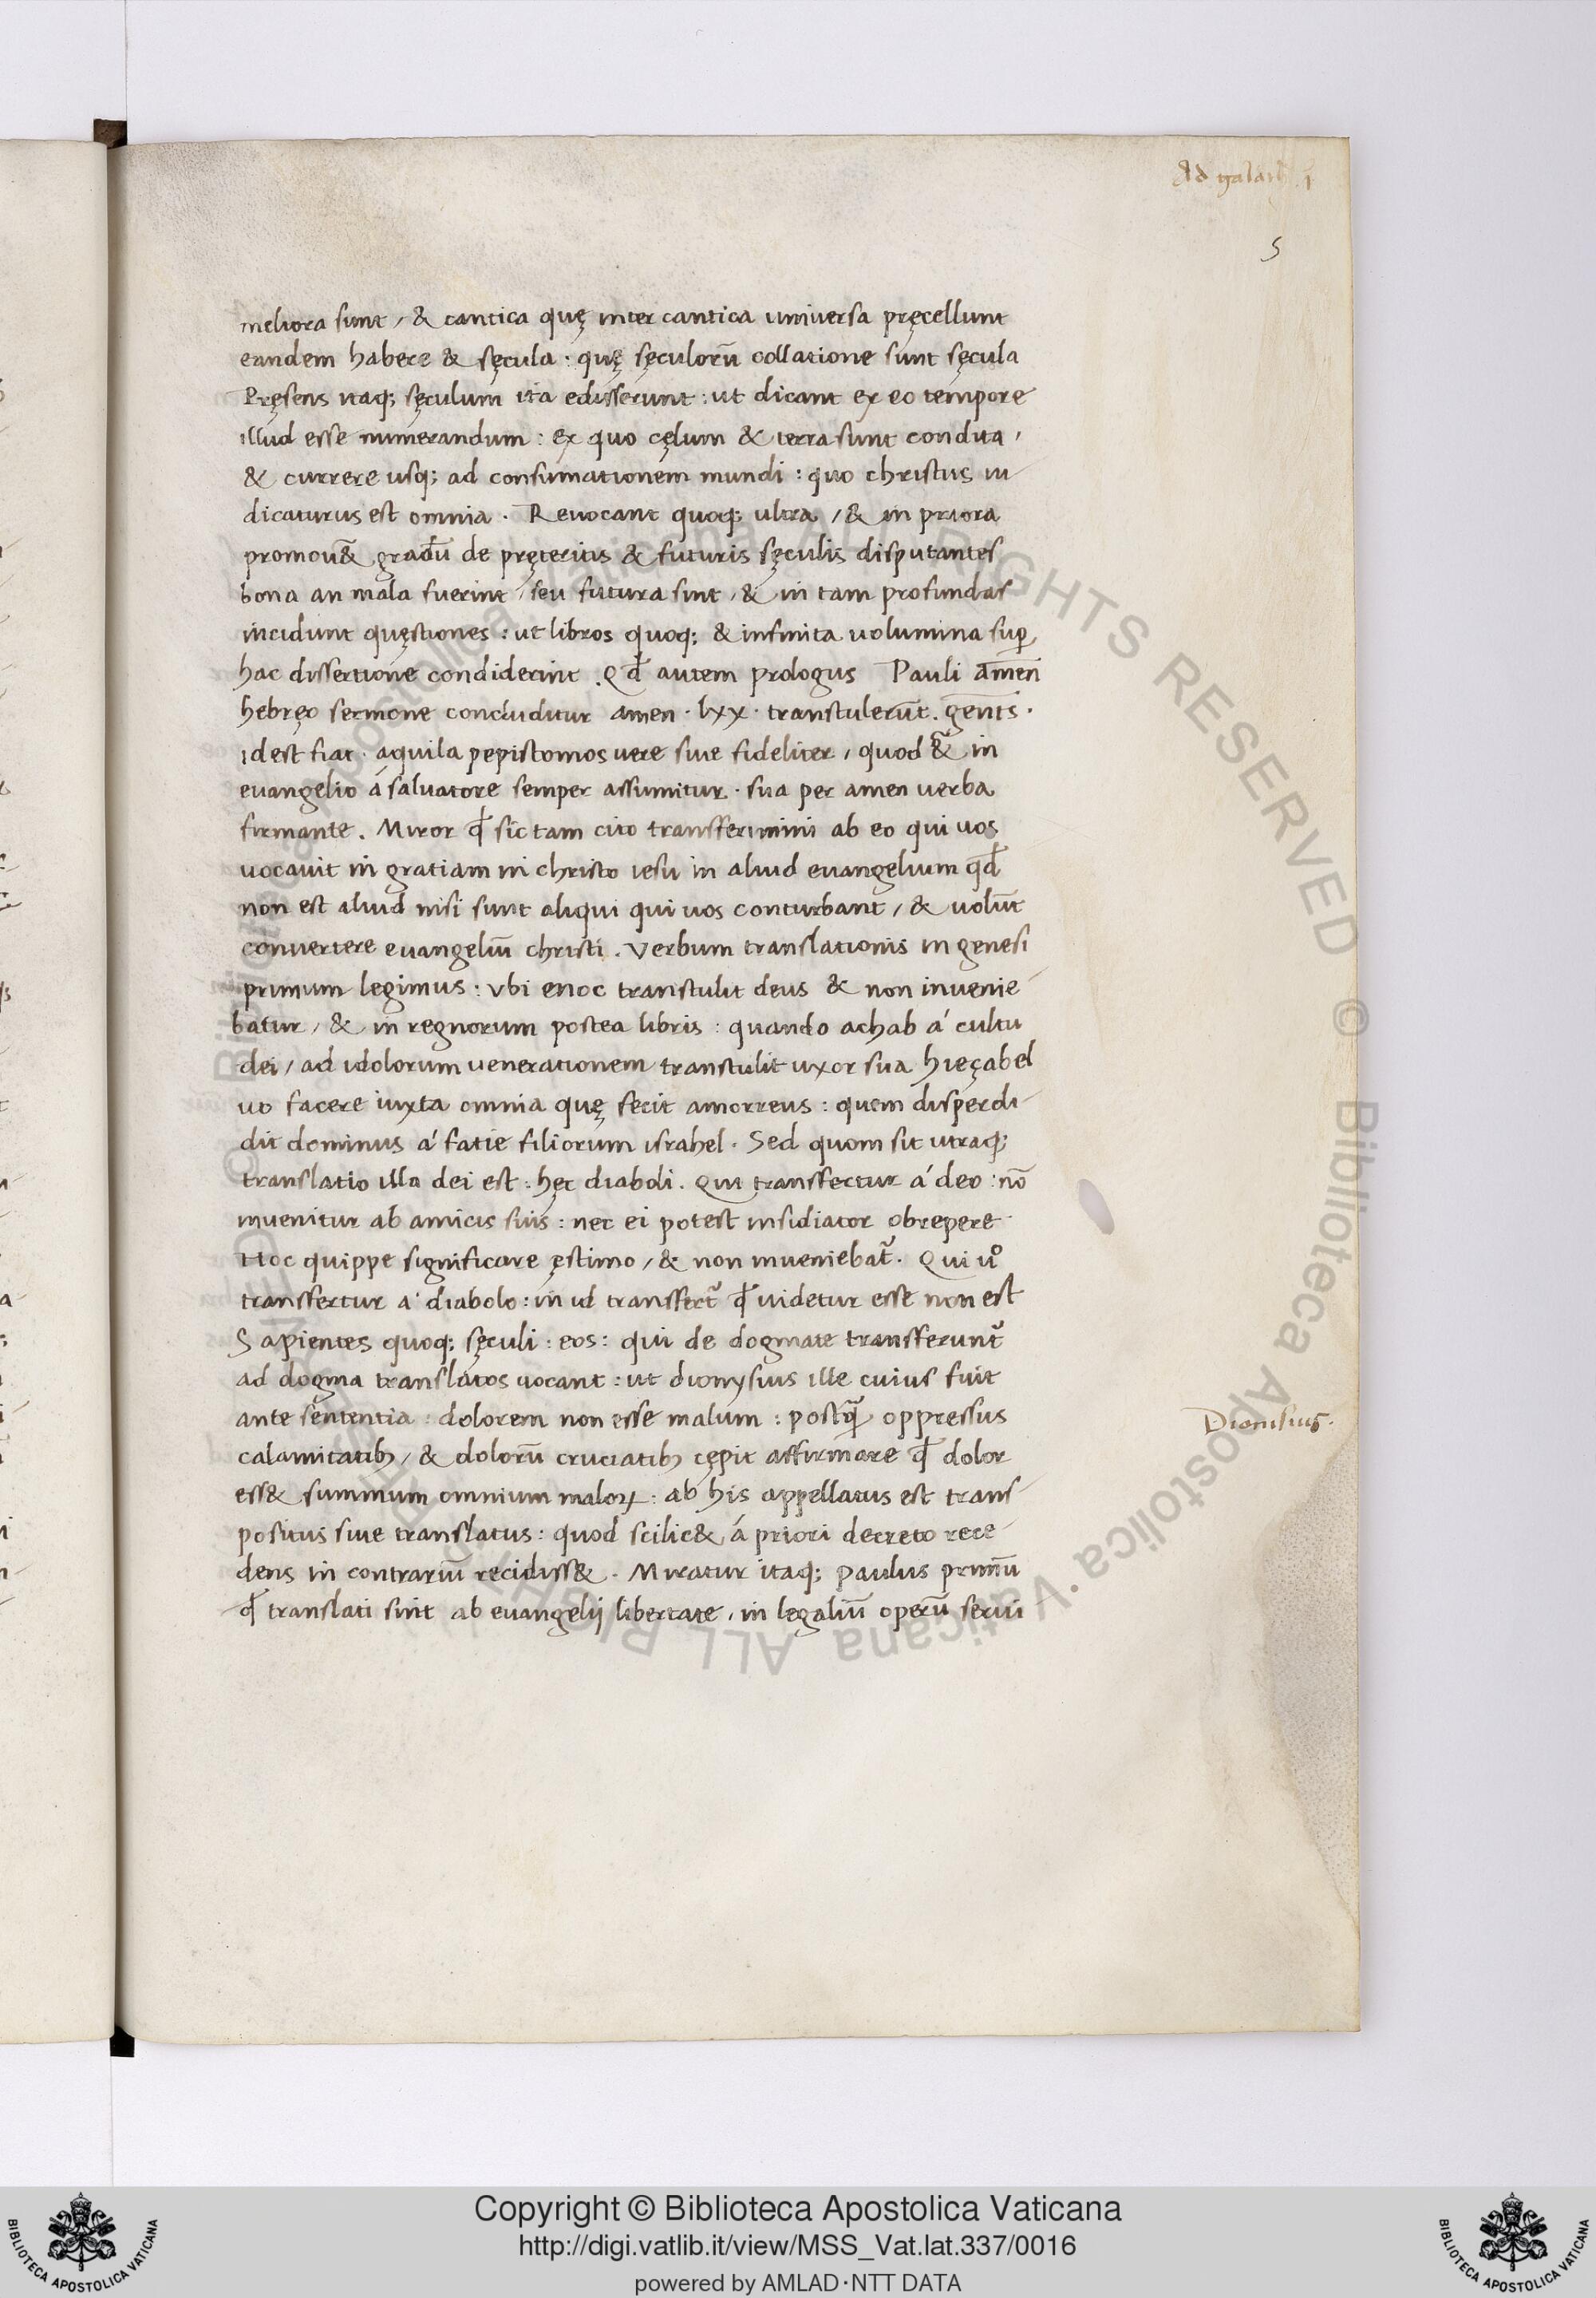 Ad galath. i
5
meliora sunt / & cantica quę inter cantica universa pręcellunt
eandem habere & sęcula : quę sęculorū collatione sunt sęcula
Pręsens itaq; sęculum ita edisserunt : ut dicant ex eo tempore
illud esse numerandum : ex quo cęlum & terra sunt condita /
& currere usq; ad consumationem mundi : quo christus iu-
dicaturus est omnia . Revocant quoq; ultra / & in priora
promov&̄ gradū de pręteritis & futuris sęculis disputantes
bona an mala fuerint / seu futura sint / & in tam profundas
incidunt quęstiones : ut libros quoq; & infinita uolumina suꝑ
hac dissertione condiderint . Qđ autem prologus Pauli amen
hebręo sermone concluditur amen · lxx · transtulerūt . genits ·
idest fiat · aquila pepistomos vere sive fideliter / quod &̄ in
euangelio á salvatore semper assumitur · sua per amen verba
firmante . Miror qđ sic tam cito transferimini ab eo qui uos
uocavit in gratiam in christo iesu in aliud evangelium qđ
non est aliud nisi sunt aliqui qui vos conturbant / & volūt
convertere evangeliū christi . Verbum translationis in genesi
primum legimus : vbi enoc transtulit deus & non invenie-
batur / & in regnorum postea libris : quando achab á cultu
dei / ad idolorum venerationem transtulit uxor sua hieçabel
ut facere iuxta omnia quę fecit amorreus : quem disperdi-
dit dominus á facie filiorum israhel . Sed quom sit utraq;
translatio illa dei est : hęc diaboli . Qui transfertur á deo : nō
invenitur ab amicis suis : nec ei potest insidiator obrepere
Hoc quippe significare ęstimo / & non inveniebat᷑ . Qui u͛o
transfertur á diabolo : in id transfert᷑ qđ videtur esse non est
Sapientes quoq; sęculi : eos : qui de dogmate transferunt᷑
ad dogma translatos vocant : ut dionysius ille cuius fuit
ante sententia : dolorem non esse malum : postq̄ oppressus
Dionisius.
calamitatib; / & dolorū cruciatib; cępit affirmare qđ dolor
ess& summum omnium maloꝝ : ab his appellatus est trans-
positus sive translatus : quod scilic& á priori decreto rece-
dens in contrariū recidiss& . Miratur itaq; Paulus primū
qđ translati sint ab evangelij libertate / in legaliū operū servi-
Copyright © Biblioteca Apostolica Vaticana
http://digi.vatlib.it/view/MSS_Vat.lat.337/0016
powered by AMLAD·NTT DATA